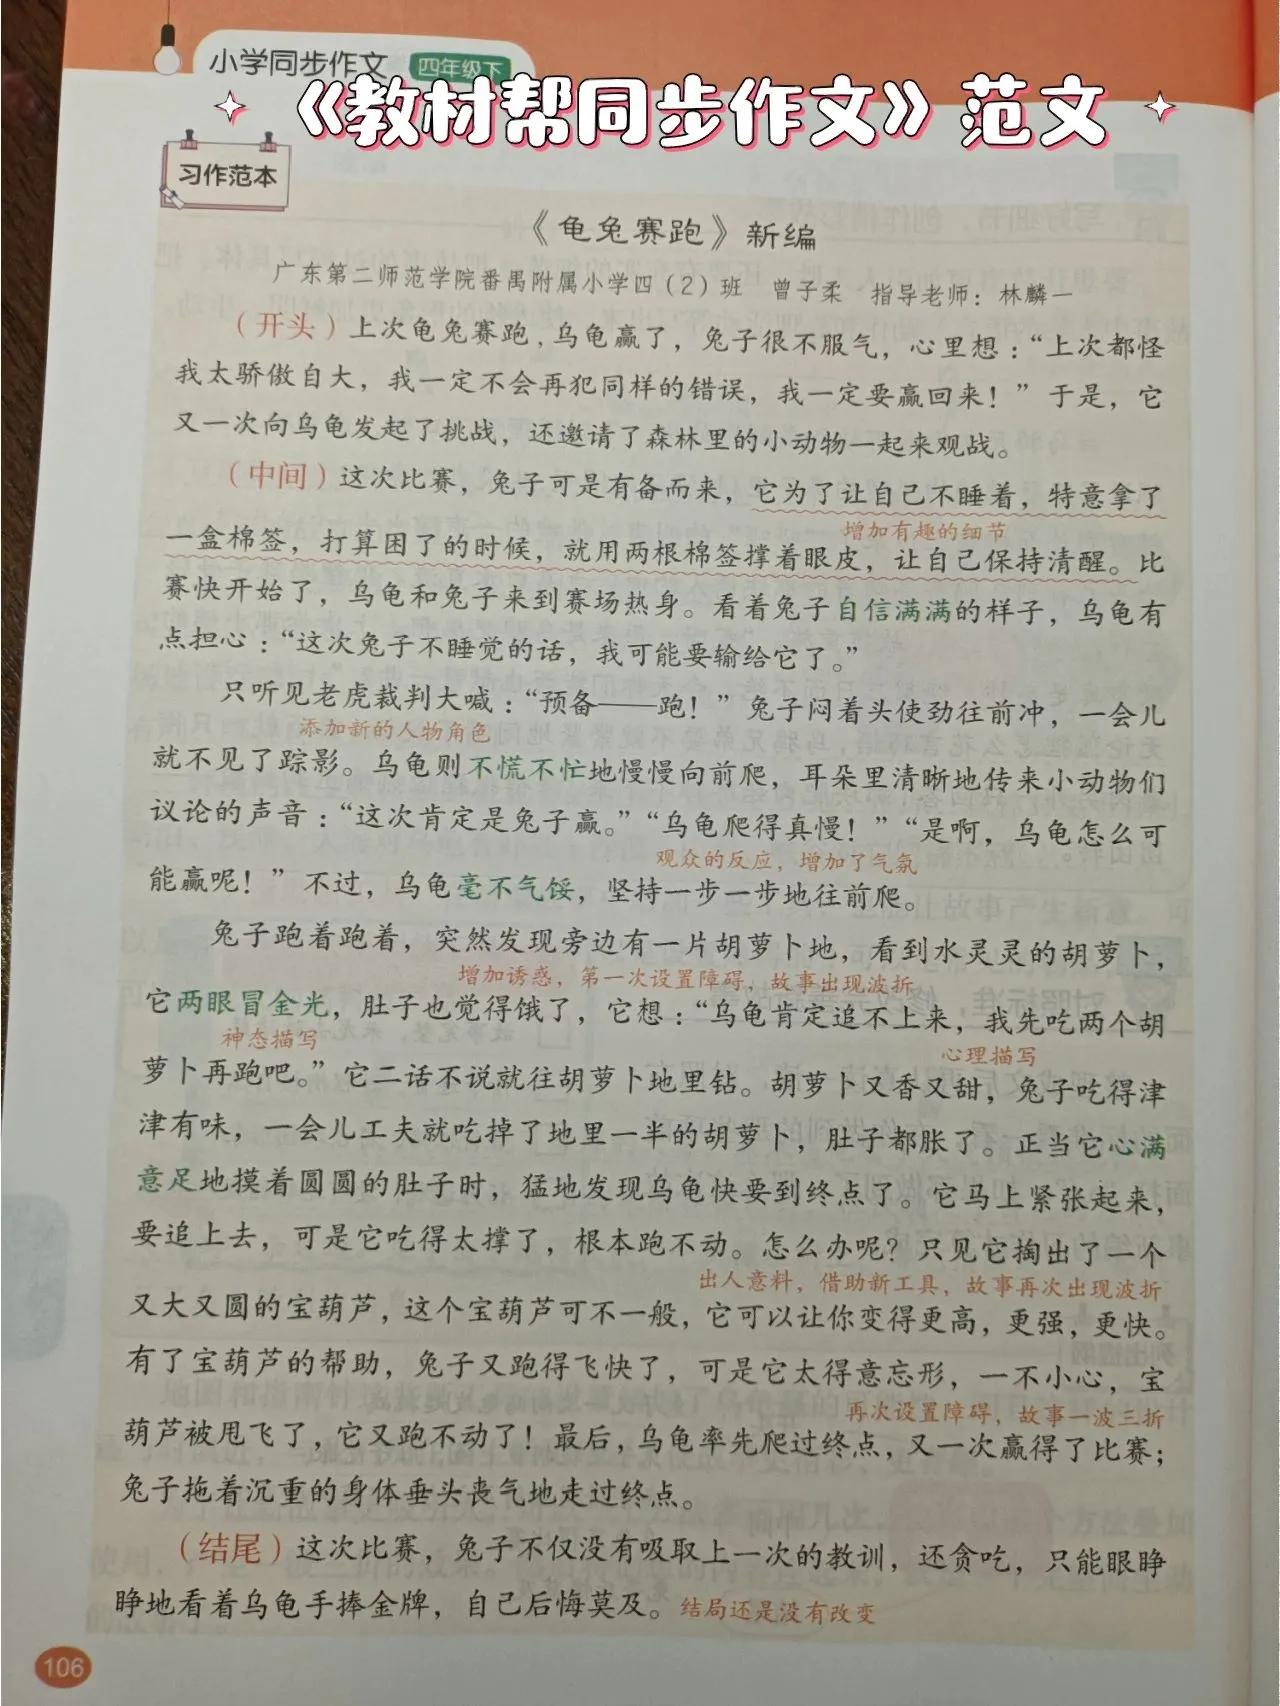 小学同步作文 四年级下
《教材帮同步作文》范文
习作范本
《龟兔赛跑》新编
广东第二师范学院番禺附属小学四（2）班 曾子柔 指导老师：林麟一
（开头）上次龟兔赛跑，乌龟赢了，兔子很不服气，心里想：“上次都怪
我太骄傲自大，我一定不会再犯同样的错误，我一定要赢回来！”于是，它
又一次向乌龟发起了挑战，还邀请了森林里的小动物一起来观战。
（中间）这次比赛，兔子可是有备而来，它为了让自己不睡着，特意拿了
增加有趣的细节
一盒棉签，打算困了的时候，就用两根棉签撑着眼皮，让自己保持清醒。比
赛快开始了，乌龟和兔子来到赛场热身。看着兔子自信满满的样子，乌龟有
点担心：“这次兔子不睡觉的话，我可能要输给它了。”
只听见老虎裁判大喊：“预备——跑！”兔子闷着头使劲往前冲，一会儿
添加新的人物角色
就不见了踪影。乌龟则不慌不忙地慢慢向前爬，耳朵里清晰地传来小动物们
议论的声音：“这次肯定是兔子赢。”“乌龟爬得真慢！”“是啊，乌龟怎么可
观众的反应，增加了气氛
能赢呢！”不过，乌龟毫不气馁，坚持一步一步地往前爬。
兔子跑着跑着，突然发现旁边有一片胡萝卜地，看到水灵灵的胡萝卜，
增加诱惑，第一次设置障碍，故事出现波折
它两眼冒金光，肚子也觉得饿了，它想：“乌龟肯定追不上来，我先吃两个胡
神态描写 心理描写
萝卜再跑吧。”它二话不说就往胡萝卜地里钻。胡萝卜又香又甜，兔子吃得津
津有味，一会儿工夫就吃掉了地里一半的胡萝卜，肚子都胀了。正当它心满
意足地摸着圆圆的肚子时，猛地发现乌龟快要到终点了。它马上紧张起来，
要追上去，可是它吃得太撑了，根本跑不动。怎么办呢？只见它掏出了一个
出人意料，借助新工具，故事再次出现波折
又大又圆的宝葫芦，这个宝葫芦可不一般，它可以让你变得更高，更强，更快。
有了宝葫芦的帮助，兔子又跑得飞快了，可是它太得意忘形，一不小心，宝
再次设置障碍，故事一波三折
葫芦被甩飞了，它又跑不动了！最后，乌龟率先爬过终点，又一次赢得了比赛；
兔子拖着沉重的身体垂头丧气地走过终点。
（结尾）这次比赛，兔子不仅没有吸取上一次的教训，还贪吃，只能眼睁
睁地看着乌龟手捧金牌，自己后悔莫及。结局还是没有改变
106